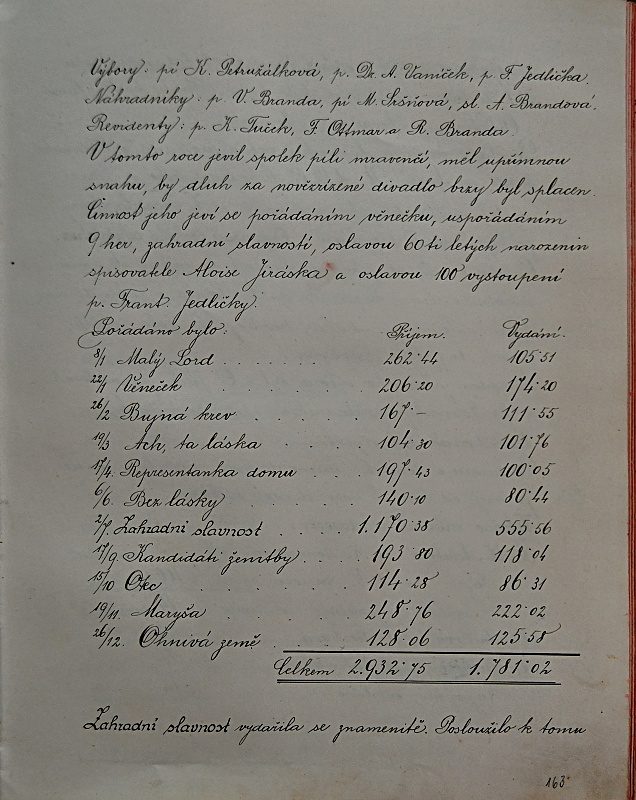 Výbory: pí K. Petružálková, p. Dr. A. Vaníček, p. F. Jedlička.
Náhradníky: p. V. Branda, pí M. Sršňová, sl. A. Brandová.
Revidenty: p. K. Tuček, F. Ottmar a R. Branda.
V tomto roce jevil spolek píli mravenčí, měl upřímnou
snahu, by dluh za novězřízené divadlo brzy byl splacen.
Činnost jeho jeví se pořádáním věnečku, uspořádáním
9 her, zahradní slavností, oslavou 60ti letých narozenin
spisovatele Aloise Jiráska a oslavou 100 vystoupení
p. Frant. Jedličky.
Pořádáno bylo: Příjem. Vydání.
8/1 Malý Lord . . . . . . 262·44 105·51
22/1 Věneček . . . . . . 206·20 174·20
26/2 Bujná krev . . . . . 167·— 111·55
19/3 Ach, ta láska . . . . 104·30 101·76
17/4. Representanka domu . . . 197·43 100·05
6/6. Bez lásky . . . . . 140·10 80·44
2/7. Zahradní slavnost . . . . 1.170·38 555·56
17/9. Kandidáti ženitby . . . . 193·80 118·04
15/10 Otec . . . . . . 114·28 86·31
19/11. Maryša . . . . . . 248·76 222·02
26/12. Ohnivá země . . . . 128·06 125·58
Celkem 2.932·75 1.781·02
Zahradní slavnost vydařila se znamenitě. Posloužilo k tomu
163